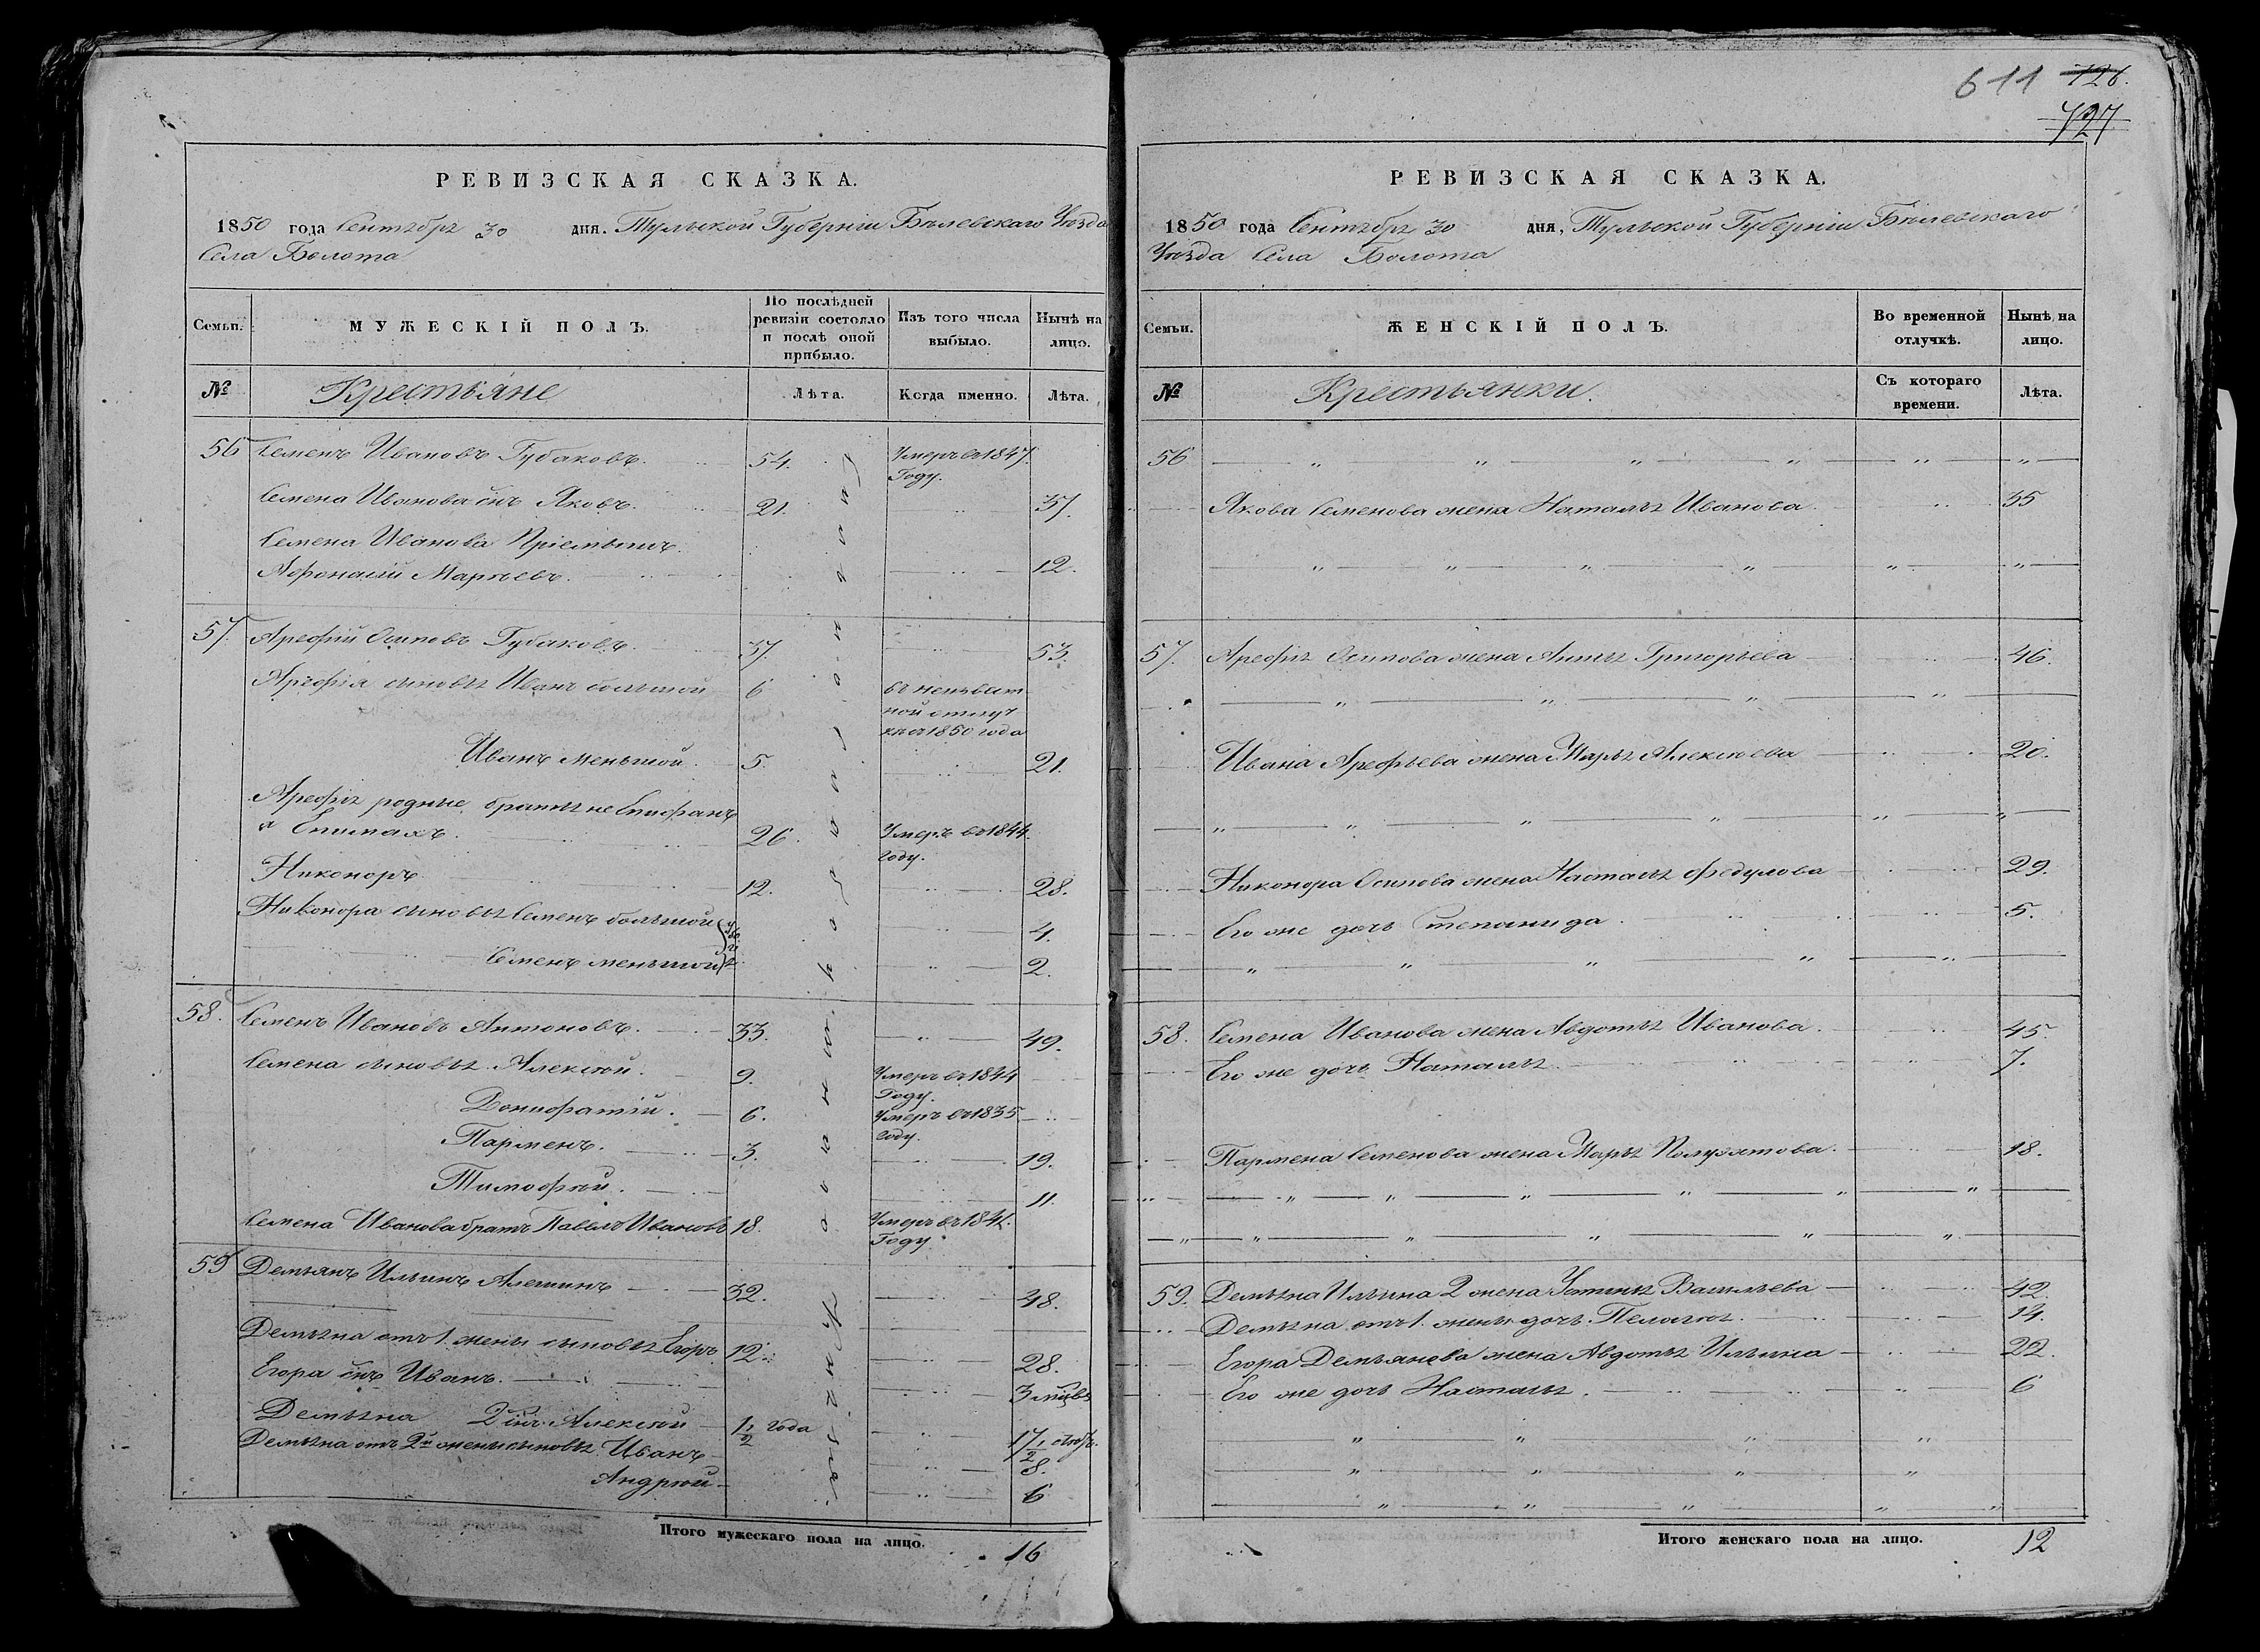 611 126.
127
РЕВИЗСКАЯ СКАЗКА.
1850 года Сентября 30 дня. Тульской Губерніи Бѣлевскаго Уѣзда
Села Болота
Семьи. МУЖЕСКІЙ ПОЛЪ. По послѣдней ревизіи состояло и послѣ оной прибыло. Изъ того числа выбыло. Нынѣ на лицо.
№ Крестьяне Лѣта. Когда именно. Лѣта.
56 Семенъ Ивановъ Губаковъ. 54. Умеръ въ 1847. Году.
Семена Иванова снъ Яковъ. 21. 37.
Семена Иванова Пріемышъ
Афонасій Марѣевъ. 12.
57. Арефій Осиповъ Губаковъ. 37. 53.
Арефія сыновья Иванъ большой 6 въ неизвѣст
ной отлуч
кѣ съ 1850 года
Иванъ меньшой. 5. 21.
Арефія родные братья не Епифанъ
а Епимахъ. 26. Умеръ въ 1844.
году.
Никоноръ 12. 28.
Никонора сыновья Семенъ большой 4.
Семенъ меньшой 2.
58. Семенъ Ивановъ Антоновъ. 33. 49.
Семена сыновья Алексѣй. 9. Умеръ въ 1844
Году.
6. Умеръ въ 1835
году.
Парменъ. 3. 19.
Тимофѣй. 11.
Семена Иванова братъ Павелъ Ивановъ 18. Умеръ въ 1841.
Году.
59 Демьянъ Ильинъ Алешинъ 32. 48.
Демьяна отъ 1. жены сыновья Егоръ 12. 28.
Егора снъ Иванъ. 3 мѣсяцъ
Демьяна 2 снъ Алексѣй 1 1/2 года 17 1/2
Демьяна отъ 2й жены сыновья Иванъ 8.
Андрѣй 6
Итого мужескаго пола на лицо. 16
РЕВИЗСКАЯ СКАЗКА.
1850 года Сентября 30 дня, Тульской Губерніи Бѣлевскаго
Уѣзда Села Болота
Семьи. ЖЕНСКІЙ ПОЛЪ. Во временной отлучкѣ. Нынѣ на лицо.
№ Крестьянки. Съ котораго времени. Лѣта.
56
Якова Семенова жена Наталья Иванова. 35
57. Арефія Осипова жена Анна Григорьева 46.
Ивана Арефьева жена Марья Алексѣева 20.
Никонора Осипова жена Наталья Федулова 29.
Его же дочь Степанида. 5.
58. Семена Иванова жена Авдотья Иванова. 45
Его же дочь Наталья. 7.
Пармена Семенова жена Марья 18.
59. Демьяна Ильина 2 жена Устинья Васильева 42.
Демьяна отъ 1. жены дочь Пелагея. 14.
Егора Демьянова жена Авдотья Ильина 22.
Его же дочь Наталья. 6
Итого женскаго пола на лицо. 12